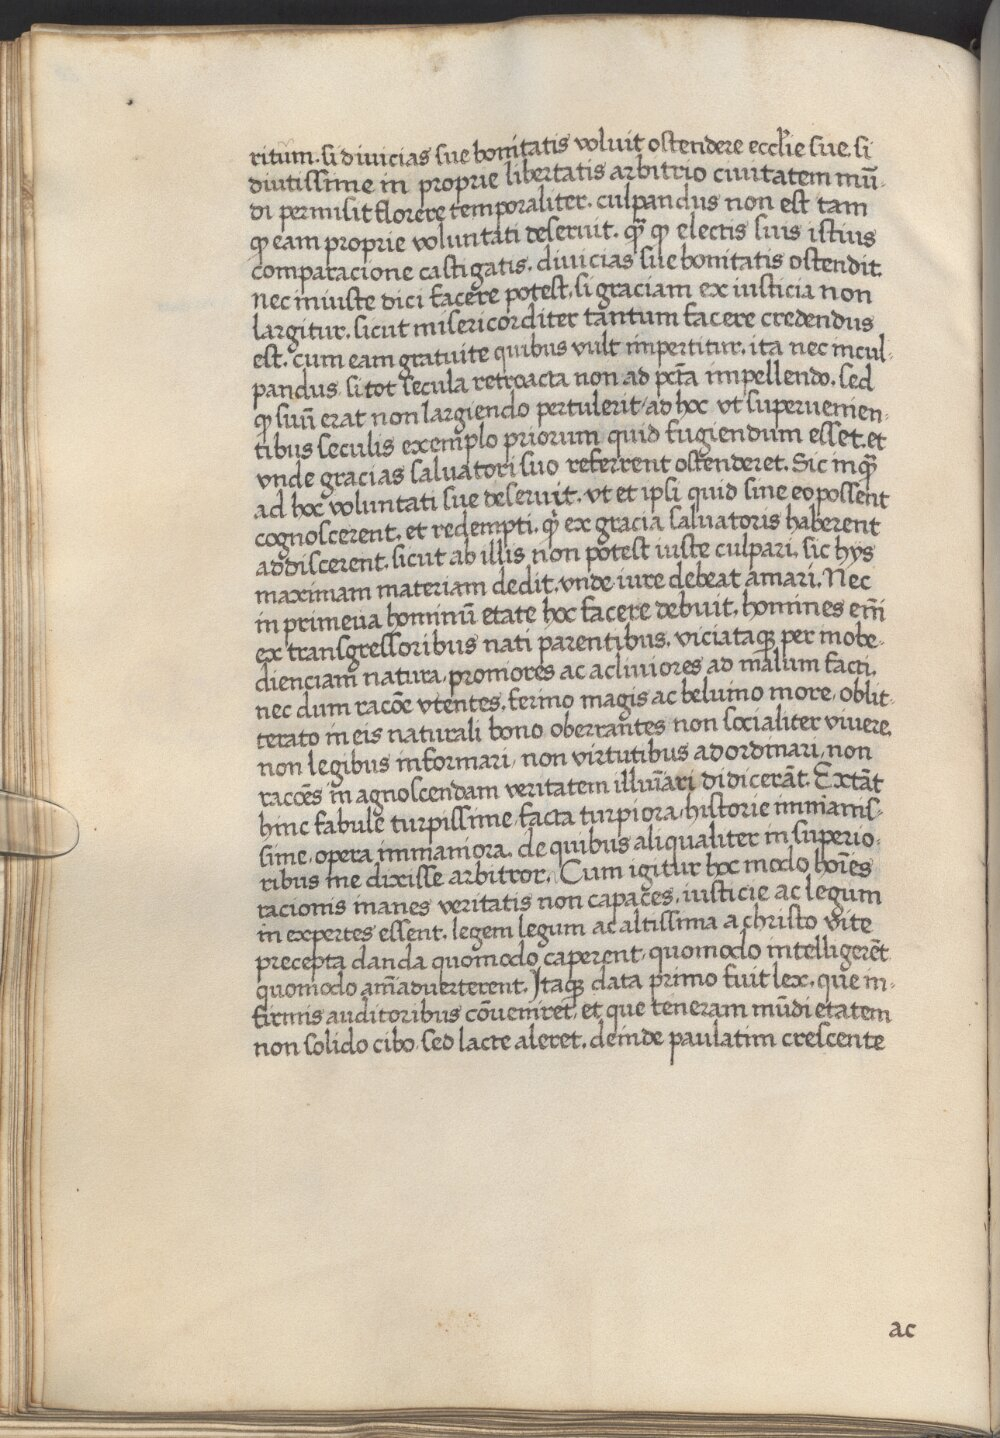 ritum. si diuicias sue bonitatis voluit ostendere eccl̄ie sue. si
diutissime in proprie libertatis arbitrio ciuitatem mū-
di permisit florere temporaliter. culpandus non est tam
qꝫ eam proprie voluntati deseruit. qꝫ̄ qꝫ electis suis istius
comparacione castigatis. diuicias sue bonitatis ostendit.
nec iniuste dici facere potest, si graciam ex iusticia non
largitur. sicut misericorditer tantum facere credendus
est. cum eam gratuite quibus vult impertitur. ita nec incul-
pandus si tot secula retroacta non ad pctā impellendo. sed
qꝫ suū erat non largiendo pertulerit / ad hoc vt superuenien-
tibus seculis exemplo priorum quid fugiendum esset. et
vnde gracias saluatori suo referrent ostenderet. Sic inqꝫ̄
ad hoc voluntati sue deseruit. vt et ipsi quid sine eo possent
cognoscerent. et redempti. qͥ ex gracia saluatoris haberent
addiscerent. sicut ab illis non potest iuste culpari. sic hys
maximam materiam dedit. vnde iure debeat amari. Nec
in primeua hominū etate hoc facere debuit. homines em̄
ex transgressoribus nati parentibus. viciataqꝫ per inobe-
dienciam natura, promiores ac acliuiores ad malum facti.
nec dum racōe vtentes. ferino magis ac beluino more, oblit-
terato in eis naturali bono oberrantes non socialiter viuere.
non legibus informari, non virtutibus adordinari, non
racōēs in agnoscendam veritatem illuīari didicerāt. Extāt
hinc fabule turpissime, facta turpiora, historie immanis-
sime, opera immaniora. de quibus aliqualiter in superio-
ribus me dixisse arbitror. Cum igitur hoc modo hoīēs
racionis inanes veritatis non capaces. iusticie ac legum
in expertes essent. legem legum ac altissima a christo vite
precepta danda quomodo caperent, quomodo intelligerēt
quomodo am̄aduerterent. Itaqꝫ data primo fuit lex. que in-
firmis auditoribus cōueniret. et que teneram mūdi etatem
non solido cibo, sed lacte aleret. deinde paulatim crescente
ac